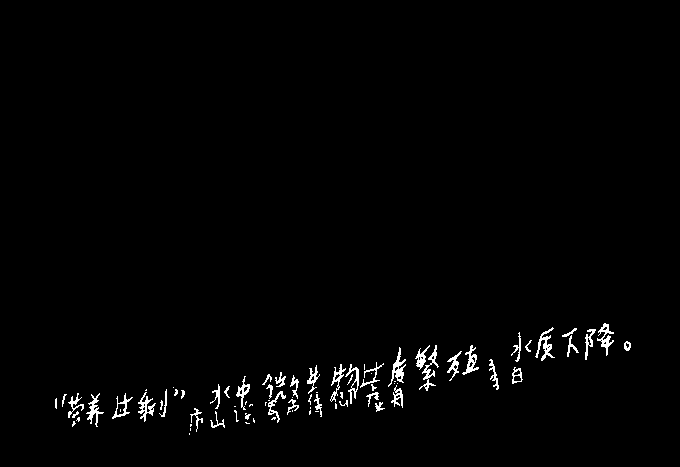 “营养过剩”水中微生物过度繁殖,水质下降。